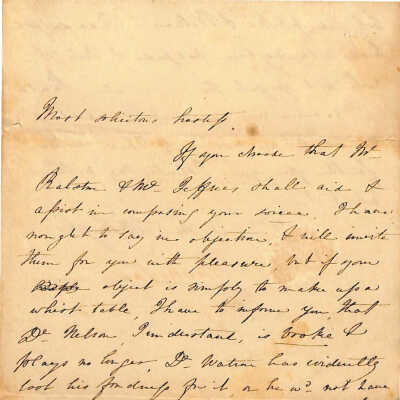 Most solicitous hostess.
If you choose that Mr
Ralston & Mr Jeffries shall aid &
assist in composing your soiree, I have
nought to say in objection, & will invite
them for you with pleasure but if your
object is simply to make up a
whist table, I have to inform you, that
Dr Nelson, I understand, is broke &
plays no longer, Dr Watson has evidently
lost his fondness for it, or he wd not have